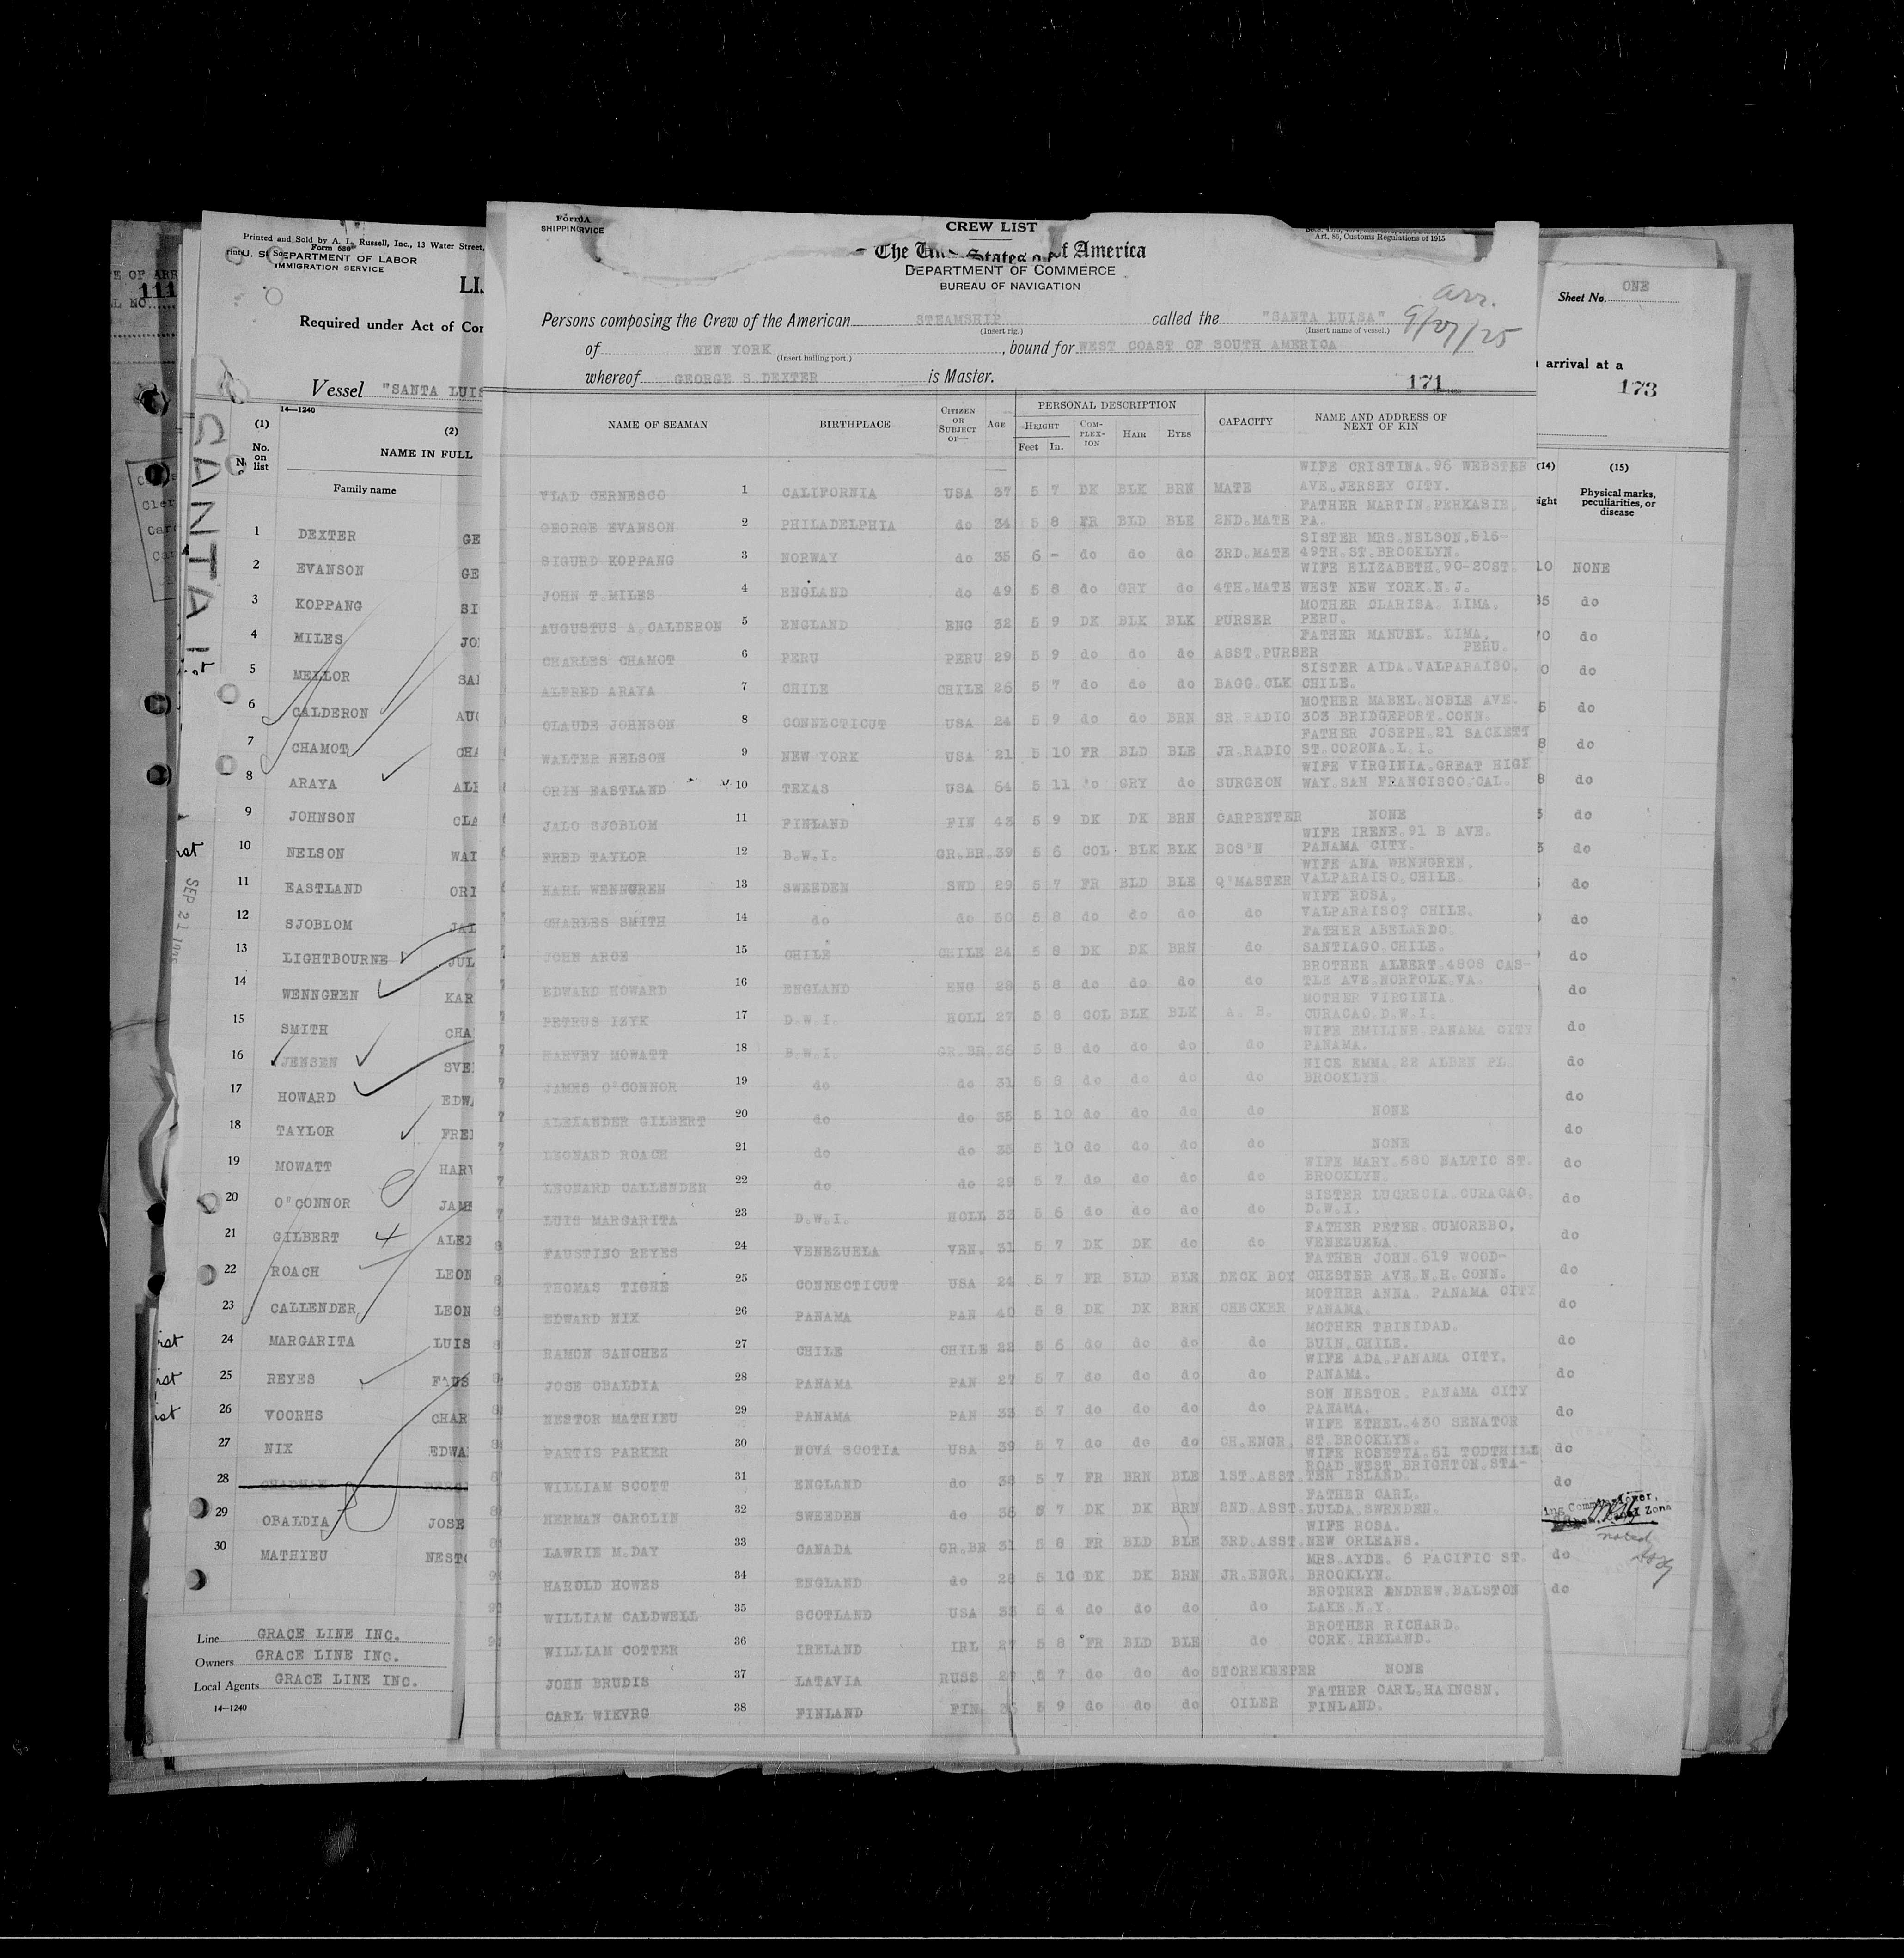 E OF ARR
111
L NO
Printed and Sold by A. L. Russell, Inc., 13 Water Street,
Form 680
U. S. DEPARTMENT OF LABOR
IMMIGRATION SERVICE
LI
Required under Act of Con
Vessel "SANTA LUIS
14—1240
(1) (2)
No. on list NAME IN FULL
Family name
1 DEXTER GE
2 EVANSON GE
3 KOPPANG SI
4 MILES JO
5 MELLOR SA
6 CALDERON AU
7 CHAMOT CHA
8 ARAYA ALF
9 JOHNSON CLA
10 NELSON WAL
11 EASTLAND ORI
12 SJOBLOM JAL
13 LIGHTBOURNE JUL
14 WENNGREN KAR
15 SMITH CHA
16 JENSEN SVE
17 HOWARD EDWA
18 TAYLOR FRE
19 MOWATT HARV
20 O'CONNOR JAME
21 GILBERT ALEX
22 ROACH LEON
23 CALLENDER LEON
24 MARGARITA LUIS
25 REYES FAUS
26 VOORHS CHAR
27 NIX EDWA
28 CHAPMAN
29 OBALDIA JOSE
30 MATHIEU NESTO
Line GRACE LINE INC.
Owners GRACE LINE INC.
Local Agents GRACE LINE INC.
14—1240
SANTA L
SEP 21
Form A
SHIPPING SERVICE
CREW LIST
Art. 86, Customs Regulations of 1915
The United States of America
DEPARTMENT OF COMMERCE
BUREAU OF NAVIGATION
arr.
9/27/25
Persons composing the Crew of the American STEAMSHIP called the "SANTA LUISA"
(Insert rig.) (Insert name of vessel.)
of NEW YORK, bound for WEST COAST OF SOUTH AMERICA
(Insert hailing port.)
whereof GEORGE S.DEXTER is Master.
171
NAME OF SEAMAN BIRTHPLACE CITIZEN OR SUBJECT OF— AGE PERSONAL DESCRIPTION CAPACITY NAME AND ADDRESS OF NEXT OF KIN
HEIGHT COM-PLEX-ION HAIR EYES
Feet In.
VLAD CERNESCO 1 CALIFORNIA USA 37 5 7 DK BLK BRN MATE WIFE CRISTINA.96 WEBSTER AVE.JERSEY CITY.
GEORGE EVANSON 2 PHILADELPHIA do 34 5 8 FR BLD BLE 2ND.MATE FATHER MARTIN.PERKASIE. PA.
SIGURD KOPPANG 3 NORWAY do 35 6 - do do do 3RD.MATE SISTER MRS.NELSON.516-49TH.ST.BROOKLYN.
JOHN T.MILES 4 ENGLAND do 49 5 8 do GRY do 4TH.MATE WIFE ELIZABETH.90-20ST. WEST NEW YORK.N.J.
AUGUSTUS A.CALDERON 5 ENGLAND ENG 32 5 9 DK BLK BLK PURSER MOTHER CLARISA. LIMA. PERU.
CHARLES CHAMOT 6 PERU PERU 29 5 9 do do do ASST.PURSER FATHER MANUEL. LIMA. PERU.
ALFRED ARAYA 7 CHILE CHILE 26 5 7 do do do BAGG.CLK SISTER AIDA.VALPARAISO. CHILE.
CLAUDE JOHNSON 8 CONNECTICUT USA 24 5 9 do do BRN SR.RADIO MOTHER MABEL.NOBLE AVE. 303 BRIDGEPORT.CONN.
WALTER NELSON 9 NEW YORK USA 21 5 10 FR BLD BLE JR.RADIO FATHER JOSEPH.21 SACKETT ST.CORONA.L.I.
ORIN EASTLAND 10 TEXAS USA 64 5 11 do GRY do SURGEON WIFE VIRGINIA.GREAT HIGH WAY.SAN FRANCISCO.CAL.
JALO SJOBLOM 11 FINLAND FIN 43 5 9 DK DK BRN CARPENTER NONE
FRED TAYLOR 12 B.W.I. GR.BR.39 5 6 COL BLK BLK BOS'N WIFE IRENE.91 B AVE. PANAMA CITY.
KARL WENNGREN 13 SWEEDEN SWD 29 5 7 FR BLD BLE Q'MASTER WIFE ANA WENNGREN. VALPARAISO.CHILE.
CHARLES SMITH 14 do do 50 5 8 do do do do WIFE ROSA. VALPARAISO? CHILE.
JOHN ARCE 15 CHILE CHILE 24 5 8 DK DK BRN do FATHER ABELARDO. SANTIAGO.CHILE.
EDWARD HOWARD 16 ENGLAND ENG 28 5 8 do do do do BROTHER ALBERT.4808 CAS-TLE AVE.NORFOLK.VA.
PETRUS IZYK 17 D.W.I. HOLL 27 5 8 COL BLK BLK A. B. MOTHER VIRGINIA. CURACAO.D.W.I.
HARVRY MOWATT 18 B.W.I. GR.BR.36 5 8 do do do do WIFE EMILINE.PANAMA CITY PANAMA.
JAMES O'CONNOR 19 do do 31 5 8 do do do do NICE EMMA.22 ALBEN PL. BROOKLYN.
ALEXANDER GILBERT 20 do do 35 5 10 do do do do NONE
LEONARD ROACH 21 do do 35 5 10 do do do do NONE
LEONARD CALLENDER 22 do do 29 5 7 do do do do WIFE MARY.580 BALTIC ST. BROOKLYN.
LUIS MARGARITA 23 D.W.I. HOLL 33 5 6 do do do do SISTER LUCRECIA.CURACAO. D.W.I.
FAUSTINO REYES 24 VENEZUELA VEN. 31 5 7 DK DK do do FATHER PETER.CUMOREBO. VENEZUELA.
THOMAS TIGHE 25 CONNECTICUT USA 24 5 7 FR BLD BLE DECK BOY FATHER JOHN.619 WOOD-CHESTER AVE.N.H.CONN.
EDWARD NIX 26 PANAMA PAN 40 5 8 DK DK BRN CHECKER MOTHER ANNA. PANAMA CITY PANAMA.
RAMON SANCHEZ 27 CHILE CHILE 22 5 6 do do do do MOTHER TRINIDAD. BUIN.CHILE.
JOSE OBALDIA 28 PANAMA PAN 27 5 7 do do do do WIFE ADA.PANAMA CITY. PANAMA.
NESTOR MATHIEU 29 PANAMA PAN 33 5 7 do do do do SON NESTOR. PANAMA CITY PANAMA.
PARTIS PARKER 30 NOVA SCOTIA USA 39 5 7 do do do CH.ENGR. WIFE ETHEL.430 SENATOR ST.BROOKLYN.
WILLIAM SCOTT 31 ENGLAND do 38 5 7 FR BRN BLE 1ST.ASST. WIFE ROSETTA.61 TODTHILL ROAD WEST BRIGHTON.STA-TEN ISLAND.
HERMAN CAROLIN 32 SWEEDEN do 36 5 7 DK DK BRN 2ND.ASST. FATHER CARL. LULDA.SWEEDEN.
LAWRIE M.DAY 33 CANADA GR.BR 31 5 8 FR BLD BLE 3RD.ASST. WIFE ROSA. NEW ORLEANS.
HAROLD HOWES 34 ENGLAND do 28 5 10 DK DK BRN JR.ENGR. MRS.AYDE. 6 PACIFIC ST. BROOKLYN.
WILLIAM CALDWELL 35 SCOTLAND USA 33 5 4 do do do do BROTHER ANDREW.BALSTON LAKE.N.Y.
WILLIAM COTTER 36 IRELAND IRL 27 5 8 FR BLD BLE do BROTHER RICHARD. CORK.IRELAND.
JOHN BRUDIS 37 LATAVIA RUSS 5 7 do do do STOREKEEPER NONE
CARL WIKVRG 38 FINLAND FIN 5 9 do do do OILER FATHER CARL.HAINGSN. FINLAND.
Sheet No. ONE
arrival at a
173
(14) (15)
ight Physical marks, peculiarities, or disease
10 NONE
35 do
70 do
0 do
5 do
8 do
8 do
5 do
3 do
do
do
do
do
do
do
do
do
do
do
do
do
do
do
do
do
do
do
do
do
do
noted